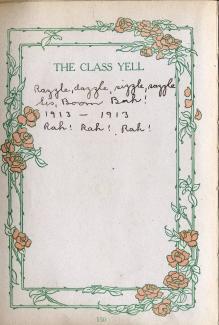 THE CLASS YELL
Razzle, dazzle, sizzle, sozzle
Sis, Boom Bah!
1913 — 1913
Rah! Rah! Rah!
150